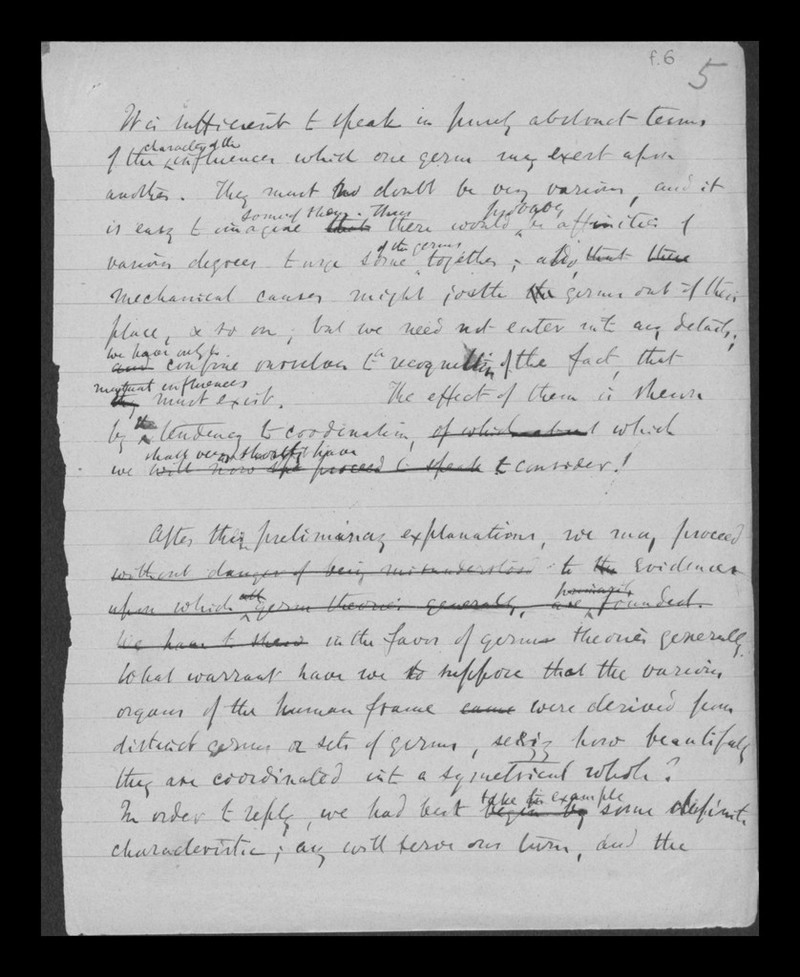 f.6
5
It is sufficient to speak in purely abstract terms
character of the
of the influences which one germ may exert upon
another. They must no doubt be very various, and it
some of them. Thus probably
is easy to imagine that there would be affinities of
of the germs
various degrees to urge some together; that there
mechanical causes might jostle the germs out of their
place, & so on; but we need not enter into any details;
we have only to
and confine ourselves to a recognition of the fact, that
mutual influences
they must exist. The effect of them is shewn
the
by tendency to coordination, of which about which
shall very shortly have
we will now proceed to speak to consider!
After this preliminary explanations, we may proceed
without danger of being misunderstood to the Evidences
all primarily
upon which germ theories generally, are founded.
We have to shew in the favor of germ theories generally.
What warrant have we to suppose that the various
organs of the human frame came were derived from
distinct germs or sets of germs, seeing how beautifully
they are coordinated into a symetrical whole?
take for example
In order to reply, we had best begin by some definite
characteristic; any will serve our turn, and the